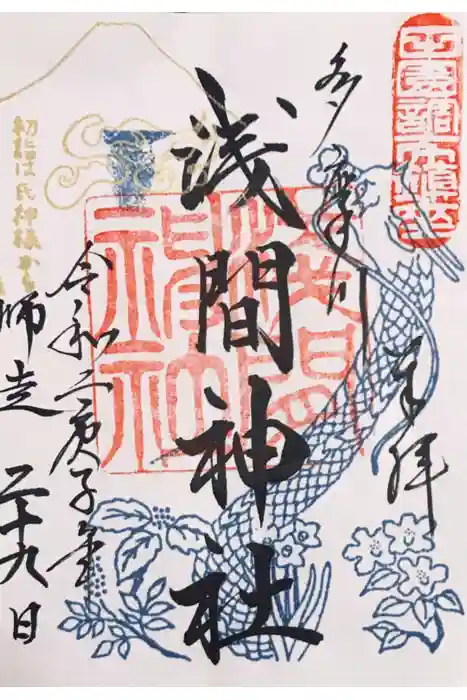 田園調布鎮座
多摩川
奉拝
浅間神社
令和二庚子年
師走二十九日
初詣は氏神様から